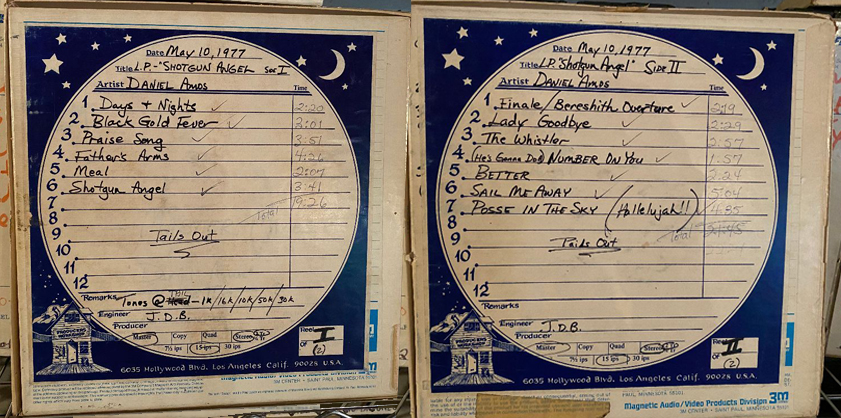 Date May 10, 1977
Title L.P.-"SHOTGUN ANGEL SIDE I
Artist DANIEL AMOS
Time
1. Days + Nights ✓ 2:20
2. Black Gold Fever ✓ 3:01
3. Praise Song ✓ 3:51
4. Father's Arms ✓ 4:26
5. Meal ✓ 2:07
6. Shotgun Angel ✓ 3:41
7. 19:26
8. Total
9. Tails Out
10.
11.
12.
Remarks Tones @ - 1K/16K/10K/50K/30K
Engineer J.D.B.
Producer
Master Copy Quad Stereo
7½ ips 15 ips 30 ips
Reel I
OF (2)
PRODUCERS WORKSHOP
6035 Hollywood Blvd. Los Angeles Calif. 90028 U.S.A.
Magnetic Audio/Video Products Division
3M CENTER • SAINT PAUL, MINNESOTA
Date May 10, 1977
Title L.P. "Shotgun Angel" SIDE II
Artist DANIEL AMOS
Time
1. Finale/Bereshith Overture ✓ 2:19
2. Lady Goodbye ✓ 2:29
3. The Whistler ✓ 2:57
4. (He's Gonna Do a) NUMBER ON YOU ✓ 1:57
5. BETTER ✓ 2:24
6. SAIL ME AWAY ✓ 5:04
7. POSSE IN THE SKY (Hallelujah!!) 4:35
8. Total
9.
10. Tails Out
11.
12.
Remarks
Engineer J.D.B.
Producer
Master Copy Quad Stereo
7½ ips 15 ips 30 ips
Reel II
OF (2)
PRODUCERS WORKSHOP
6035 Hollywood Blvd. Los Angeles Calif. 90028 U.S.A.
PAUL, MINNESOTA 55101
Magnetic Audio/Video Products Division 3M
3M CENTER • SAINT PAUL, MINNESOTA